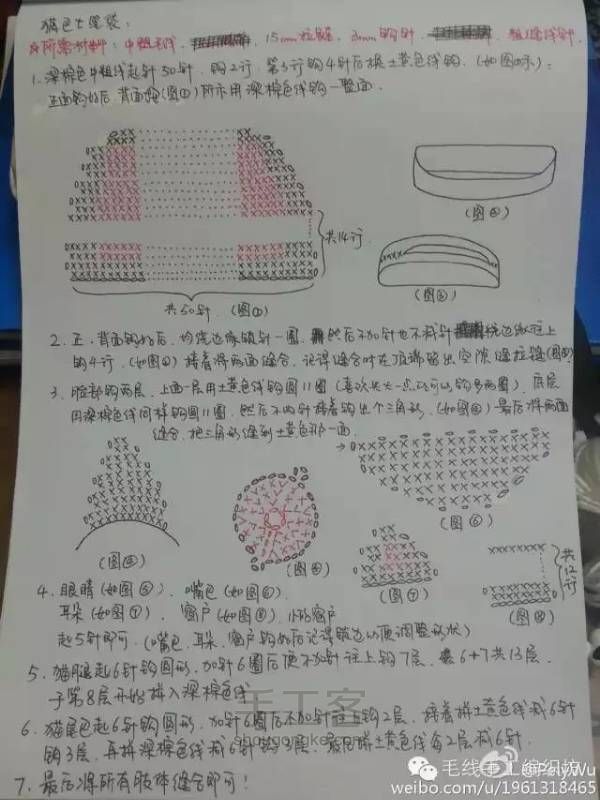 猫包大图装:
所需材料: 中粗毛线, 15mm拉链, 3mm钩针, 粗缝线针.
1. 深棕色中粗线起针50针, 钩2行, 第3行钩4针后换土黄色线钩, (如图①所示);
正面钩好后 背面按(图①)所示用深棕色线钩一整面.
(图②)
共14行
(图③)
共50针. (图①)
2. 正、背面钩好后, 均绕边缘锁针一圈, 然后不加针也不减针绕边缘往上
钩4行, (如图②) 接着将两面缝合, 记得缝合时在顶端留出空隙缝拉链(图③)
3. 脸部钩两层, 上面一层用土黄色线钩圆11圈 (喜欢大一点的可以钩多两圈), 底层
用深棕色线同样钩圆11圈, 然后不断针接着钩出个三角形, (如图④) 最后将两面
缝合, 把三角形缝到土黄色那一面.
(图④)
(图⑤)
(图⑥)
(图⑦)
共12行
(图⑧)
4. 眼睛 (如图⑤), 嘴包 (如图⑥),
耳朵 (如图⑦), 窗户 (如图⑧), 小的窗户
起5针即可, (嘴包、耳朵、窗户钩好后记得锁边以便调整形状)
5. 猫腿起6针钩圆形, 加针6圈后便不加针往上钩7层, 6+7共13层,
于第8层开始拼入深棕色线
6. 猫尾巴起6针钩圆形, 加针6圈后不加针往上钩2层, 接着拼土黄色线减6针
钩3层, 再拼深棕色线减6针钩3层, 最后拼土黄色线每2层减6针.
7. 最后将所有肢体缝合即可!
手工客
shougongke.com
毛线手工编织坊
@PolyWu
weibo.com/u/1961318465